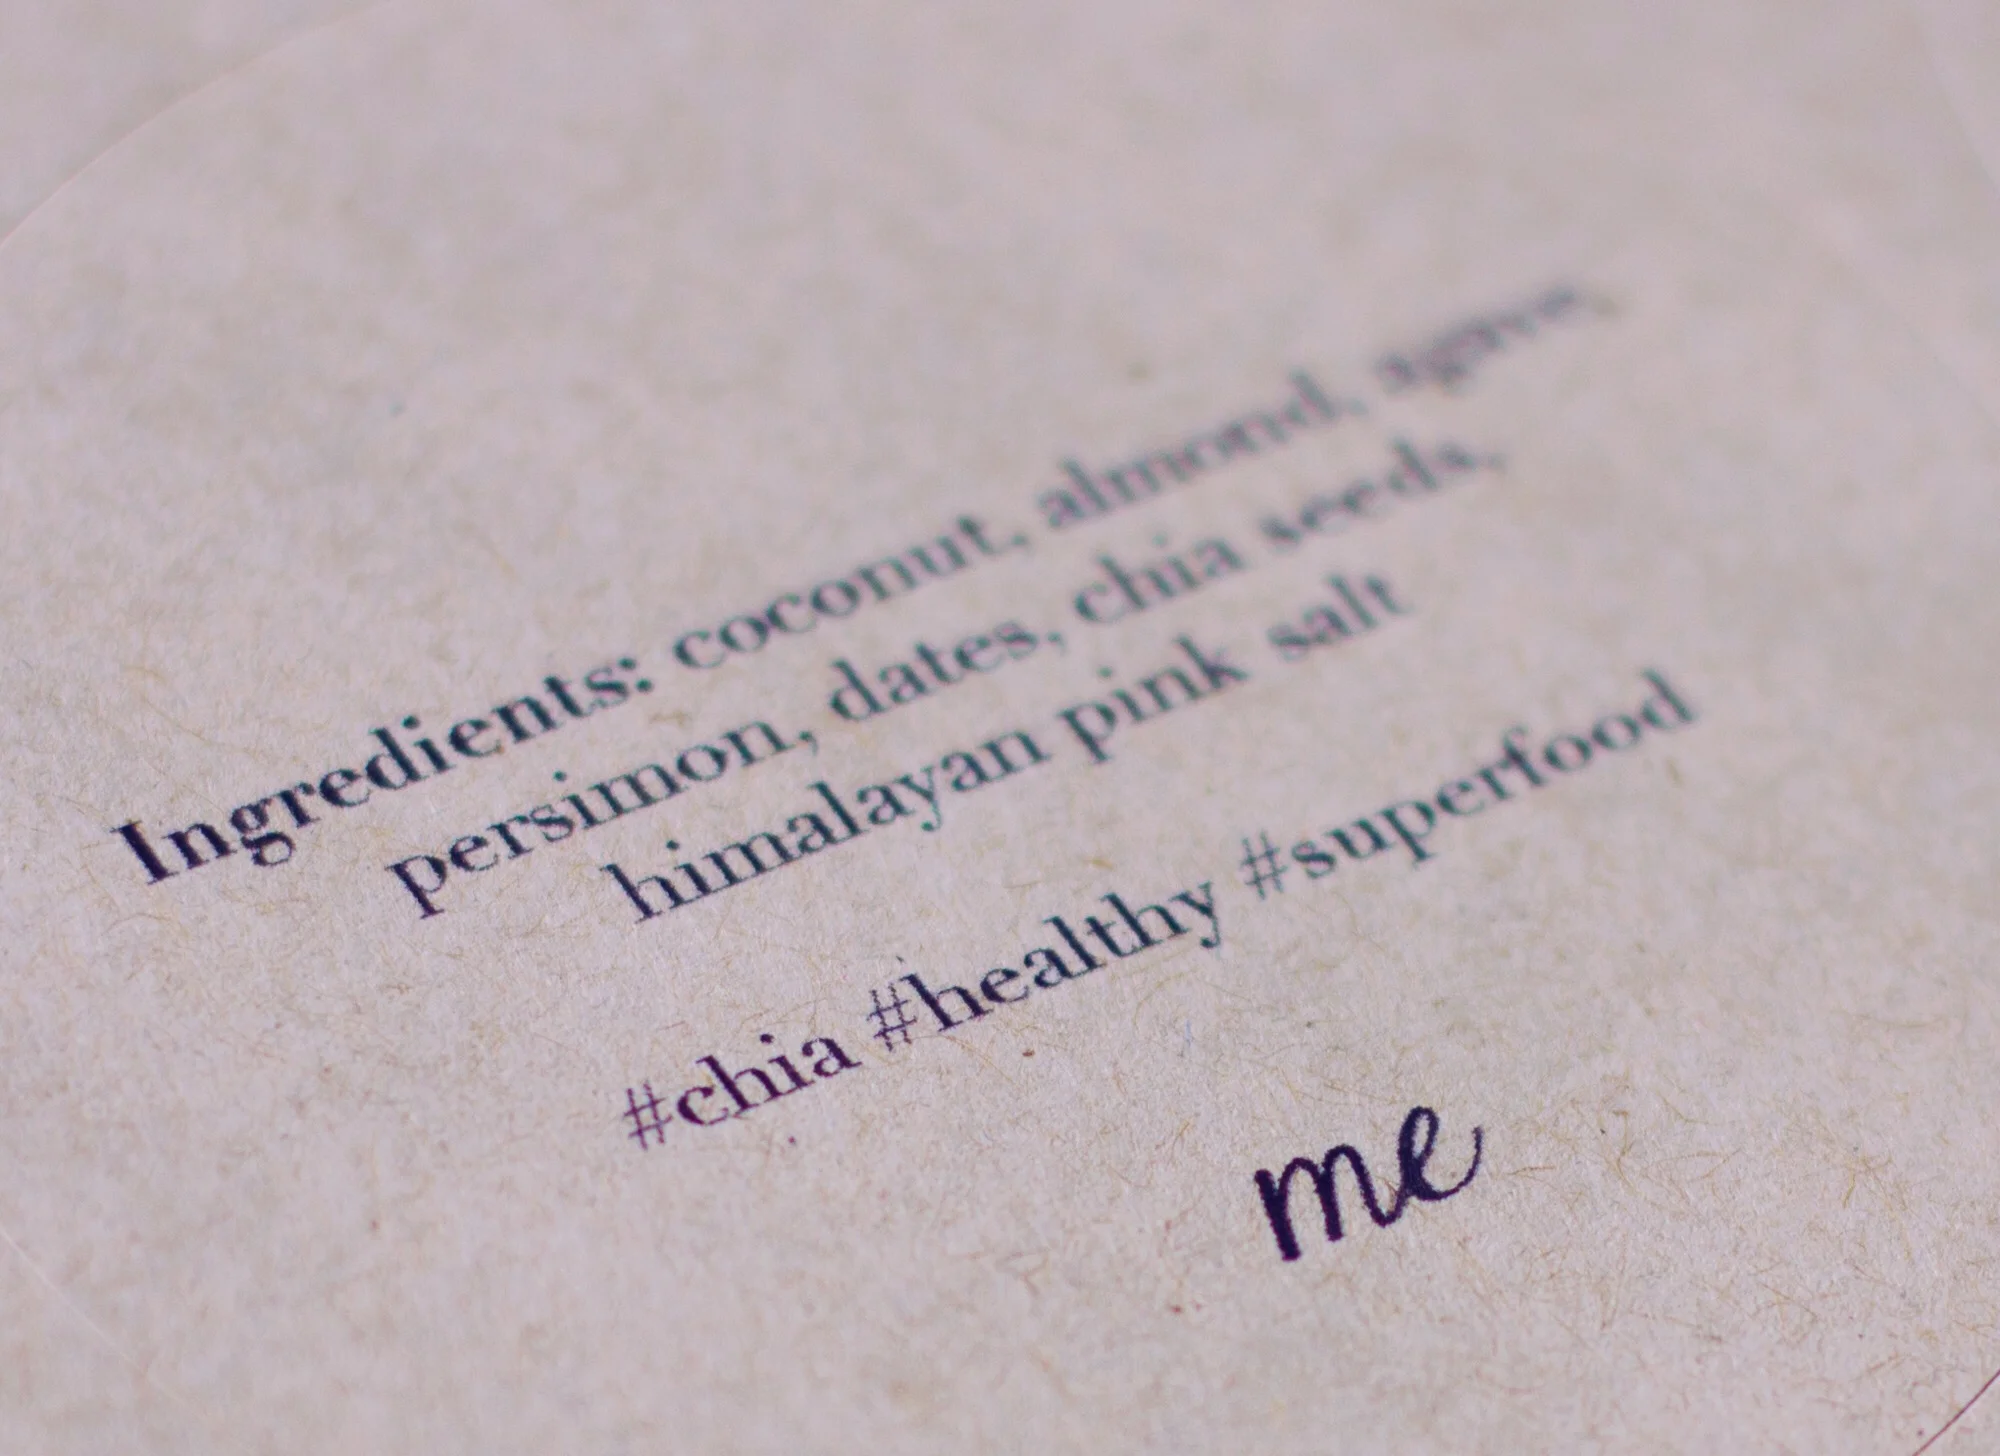 Ingredients: coconut, almond, agave,
persimon, dates, chia seeds,
himalayan pink salt
#chia #healthy #superfood
me